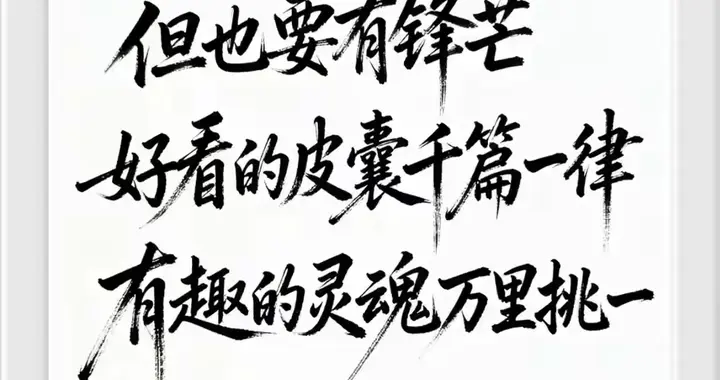 但也要有锋芒
好看的皮囊千篇一律
有趣的灵魂万里挑一